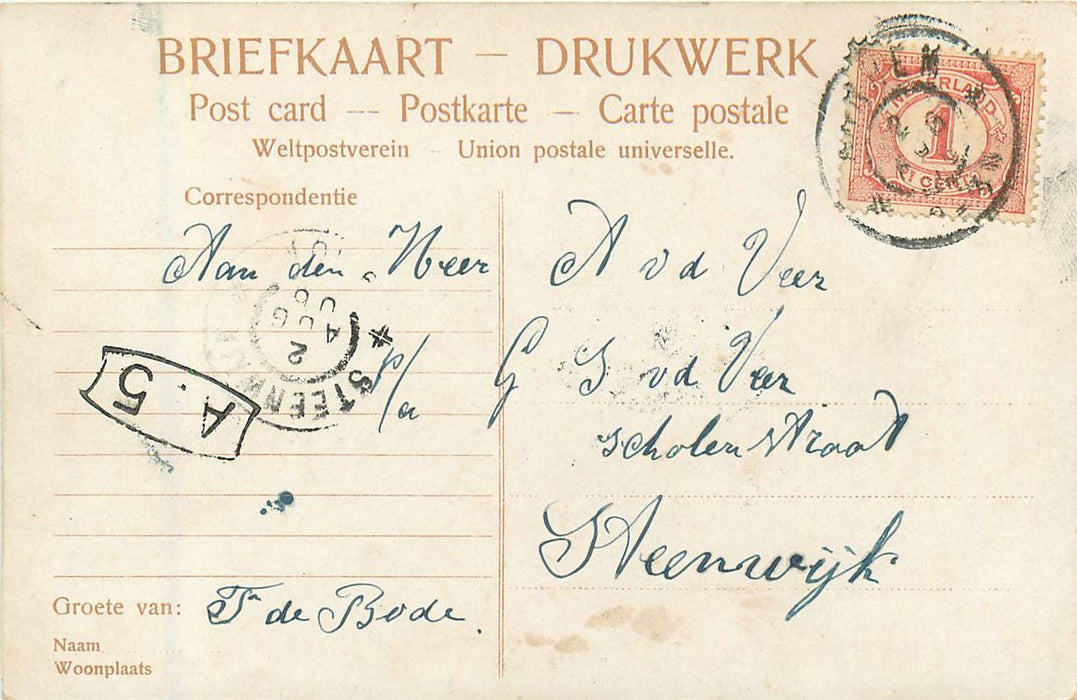 BRIEFKAART — DRUKWERK
Post card — Postkarte — Carte postale
Weltpostverein – Union postale universelle.
Correspondentie
Aan den Heer A vd Veer
p/a G S vd Veer
Scholenstraat
Steenwijk
Groete van: Fr de Bode.
Naam
Woonplaats
NEDERLAND
1
1 CENT
STEENWIJK
2
AUG
06
A. 5